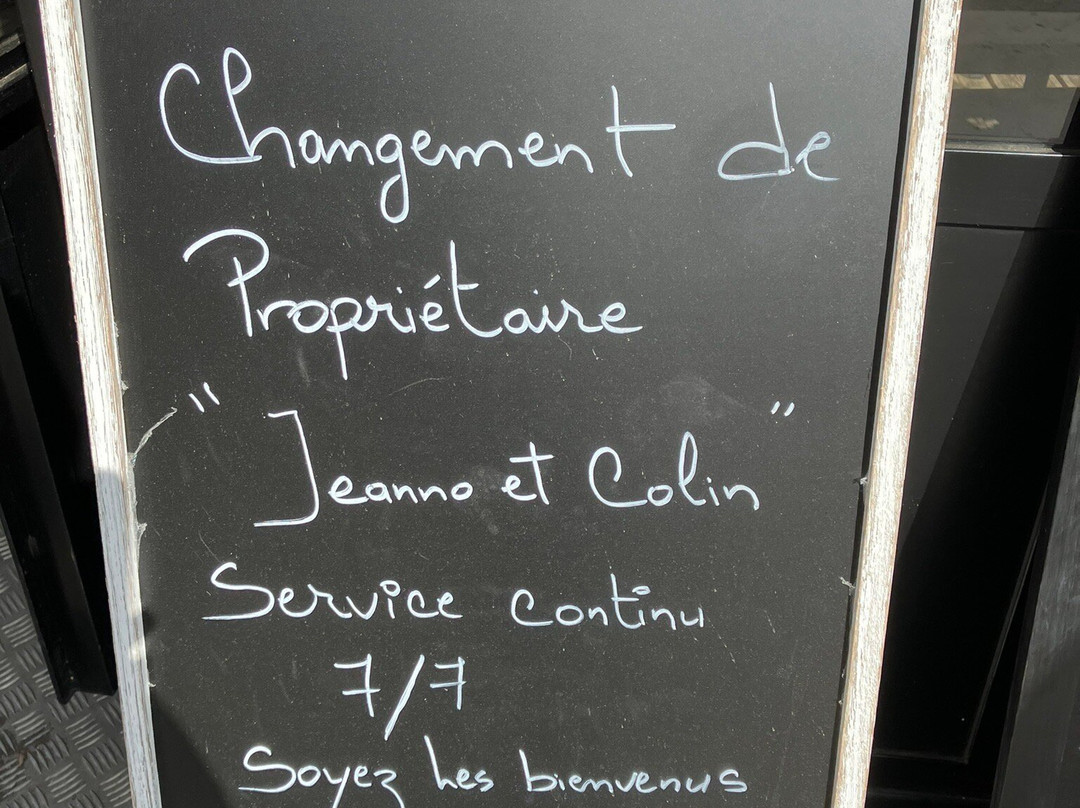 Changement de
Propriétaire
" Jeanno et Colin "
Service continu
7/7
Soyez les bienvenus